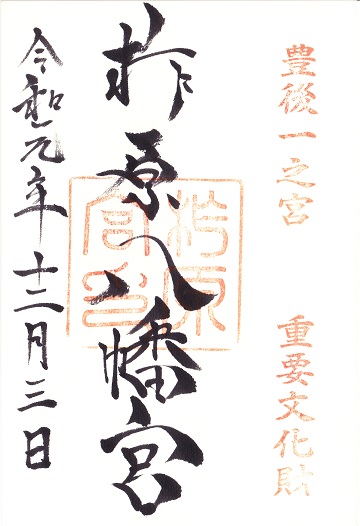 豊後一之宮
重要文化財
柞原八幡宮
令和元年十二月三日